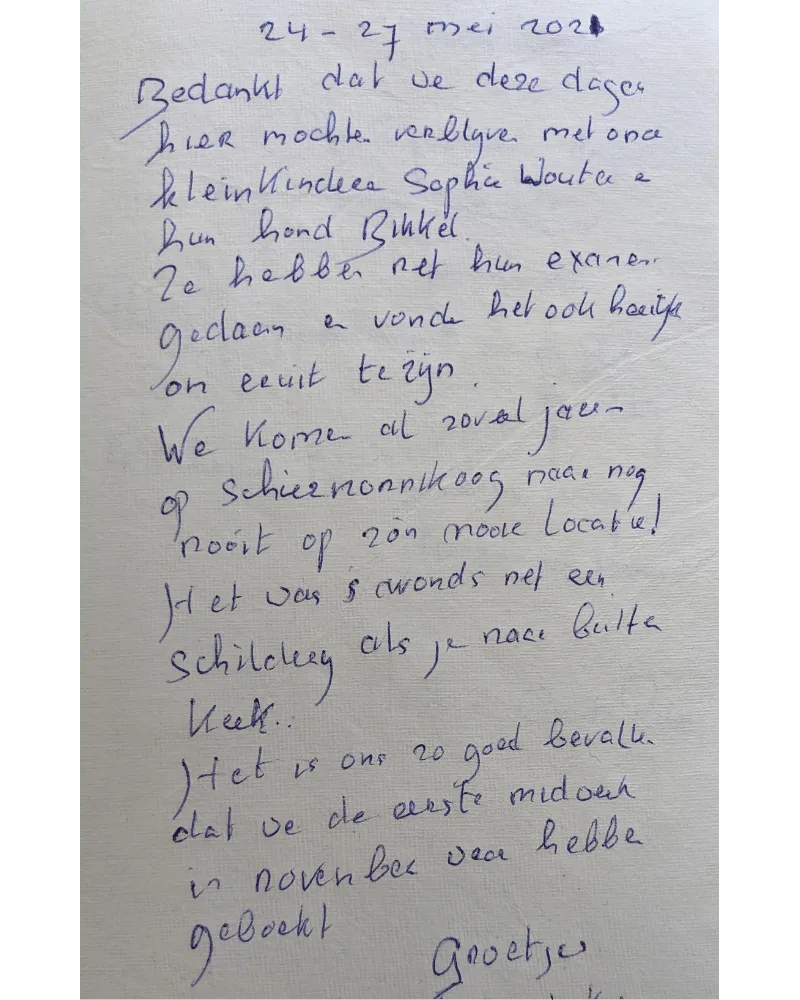 24 - 27 mei 2021
Bedankt dat we deze dagen
hier mochten verblijven met onze
kleinkinderen Sophie Wouter en
hun hond Bikkel.
Ze hebben net hun examen
gedaan en vonden het ook heerlijk
om eruit te zijn.
We komen al zoveel jaren
op Schiermonnikoog maar nog
nooit op zó'n mooie locatie!
Het was s avonds net een
schilderij als je naar buiten
keek..
Het is ons zo goed bevallen
dat we de eerste midweek
in november weer hebben
geboekt
Groetjes